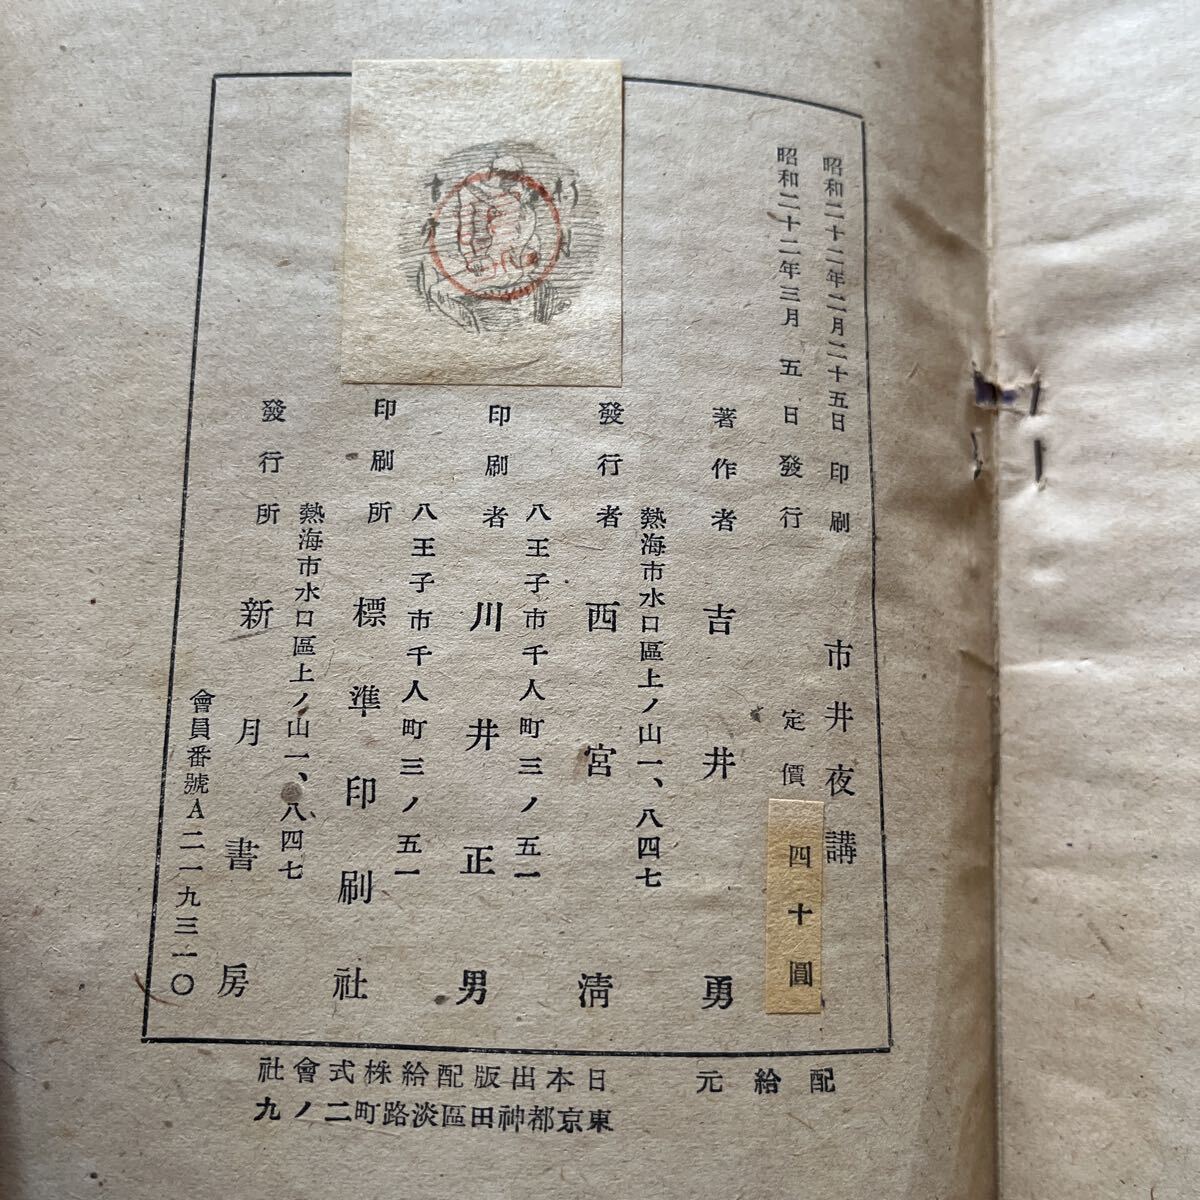 昭和二十二年二月二十五日 印刷
昭和二十二年三月 五 日 發 行
市井夜講
定價
四十圓
著作者 吉井 勇
熱海市水口區上ノ山一、八四七
發行者 西宮 清
八王子市千人町三ノ五一
印刷者 川井正男
八王子市千人町三ノ五一
印刷所 標準印刷社
熱海市水口區上ノ山一、八四七
發行所 新月書房
會員番號A二一九三一〇
配給元 日本出版配給株式會社
東京都神田區淡路町二ノ九